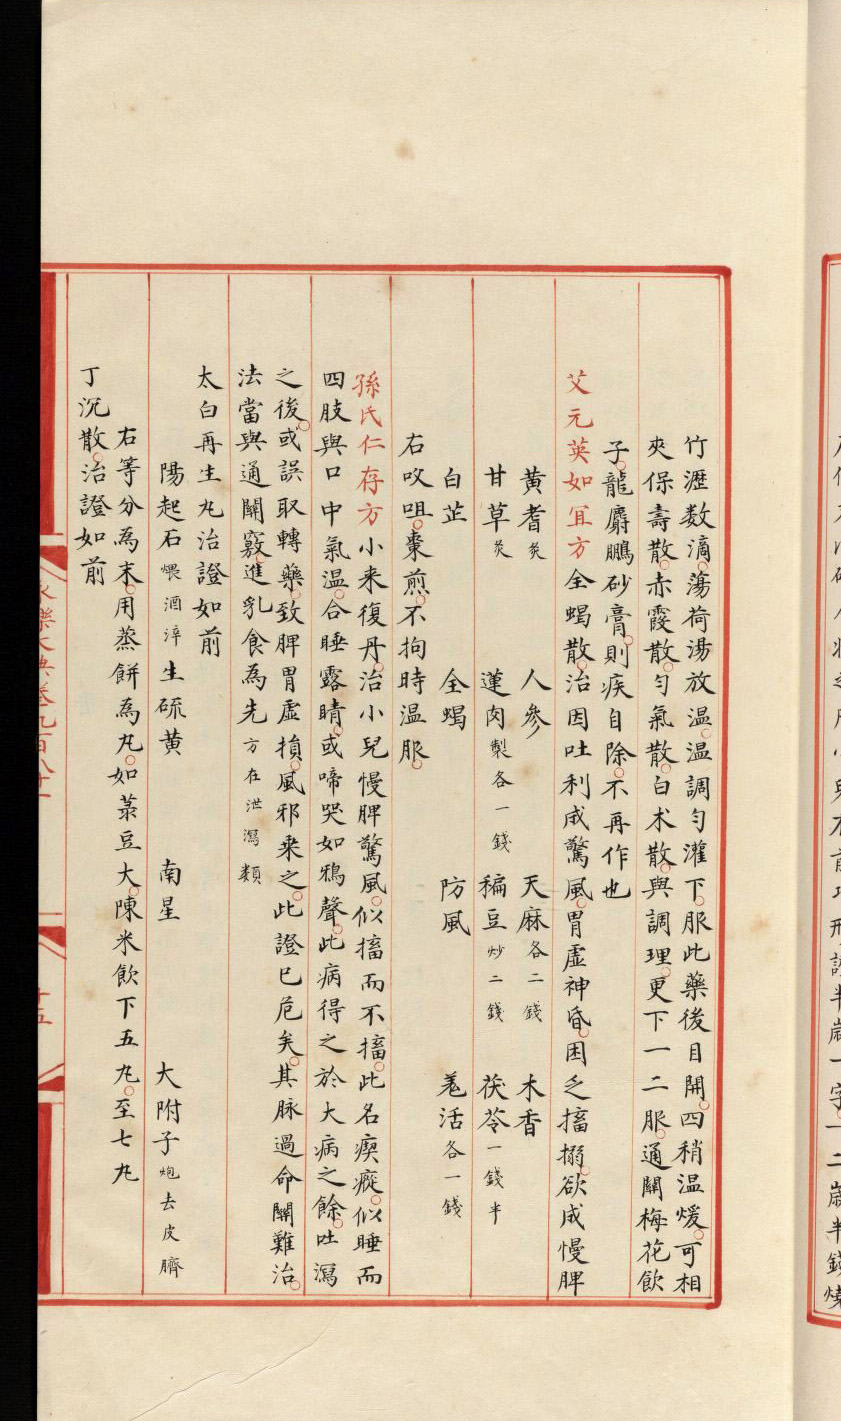 竹瀝数滴。蕩荷湯放温。温調勻灌下。服此藥後目開。四稍温煖。可相
夾保壽散。赤霞散。勻氣散。白术散。與調理。更下一二服。通關梅花飲
子。龍麝鵬砂膏。則疾自除。不再作也
艾元英如宜方全蝎散。治因吐利成驚風。胃虚神昏。困乏搐搦。欲成慢脾
黄耆炙 人參 天麻各二錢 木香
甘草炙 蓮肉製各一錢 稨豆炒二錢 茯苓一錢半
白芷 全蝎 防風 羌活各一錢
右㕮咀。棗煎。不拘時温服。
孫氏仁存方小来復丹。治小兒慢脾驚風。似搐而不搐。此名瘈瘲。似睡而
四肢與口中氣温。合睡露睛。或啼哭如鴉聲。此病得之於大病之餘。吐瀉
之後。或誤取轉藥。致脾胃虚損。風邪乗之。此證已危矣。其脉過命關難治。
法當與通關竅。進乳食為先方在泄瀉類
太白再生丸治證如前
陽起石煨酒淬 生硫黄 南星 大附子炮去皮臍
右等分為末。用蒸餅為丸。如菉豆大。陳米飲下五丸。至七丸
丁沉散。治證如前
永樂大典卷九百八十一
十五